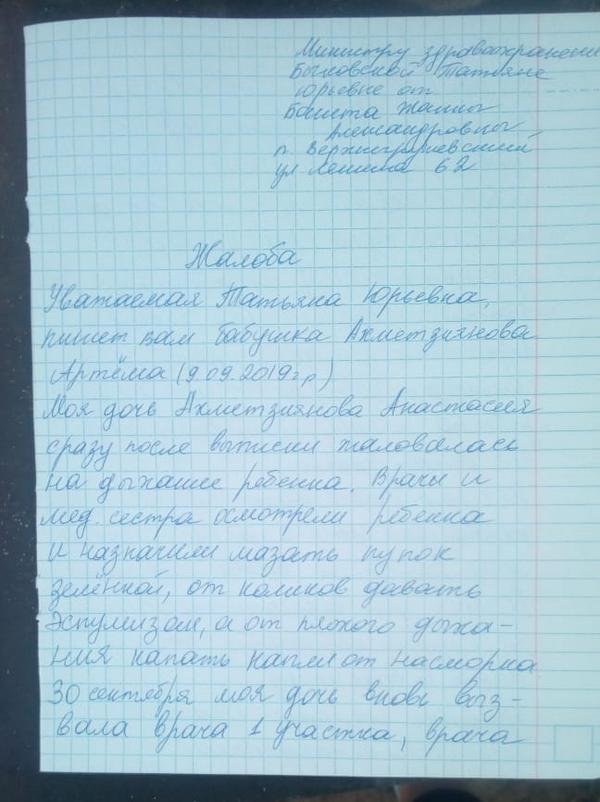 Министру здравоохранения
Быковской Татьяне
Юрьевне от
Жанны
Александровны
п. Верхнегрушевский
ул Ленина 62
Жалоба
Уважаемая Татьяна Юрьевна,
пишет вам бабушка Ахметзиянова
Артёма (9.09.2019г.р)
Моя дочь Ахметзиянова Анастасия
сразу после выписки жаловалась
на дыхание ребенка. Врачи и
мед. сестра осмотрели ребенка
и назначили мазать пупок
зелёнкой, от коликов давать
Эспумизан, а от плохого дыха-
ния капать капли от насморка
30 сентября моя дочь вновь выз-
вала врача 1 участка, врача